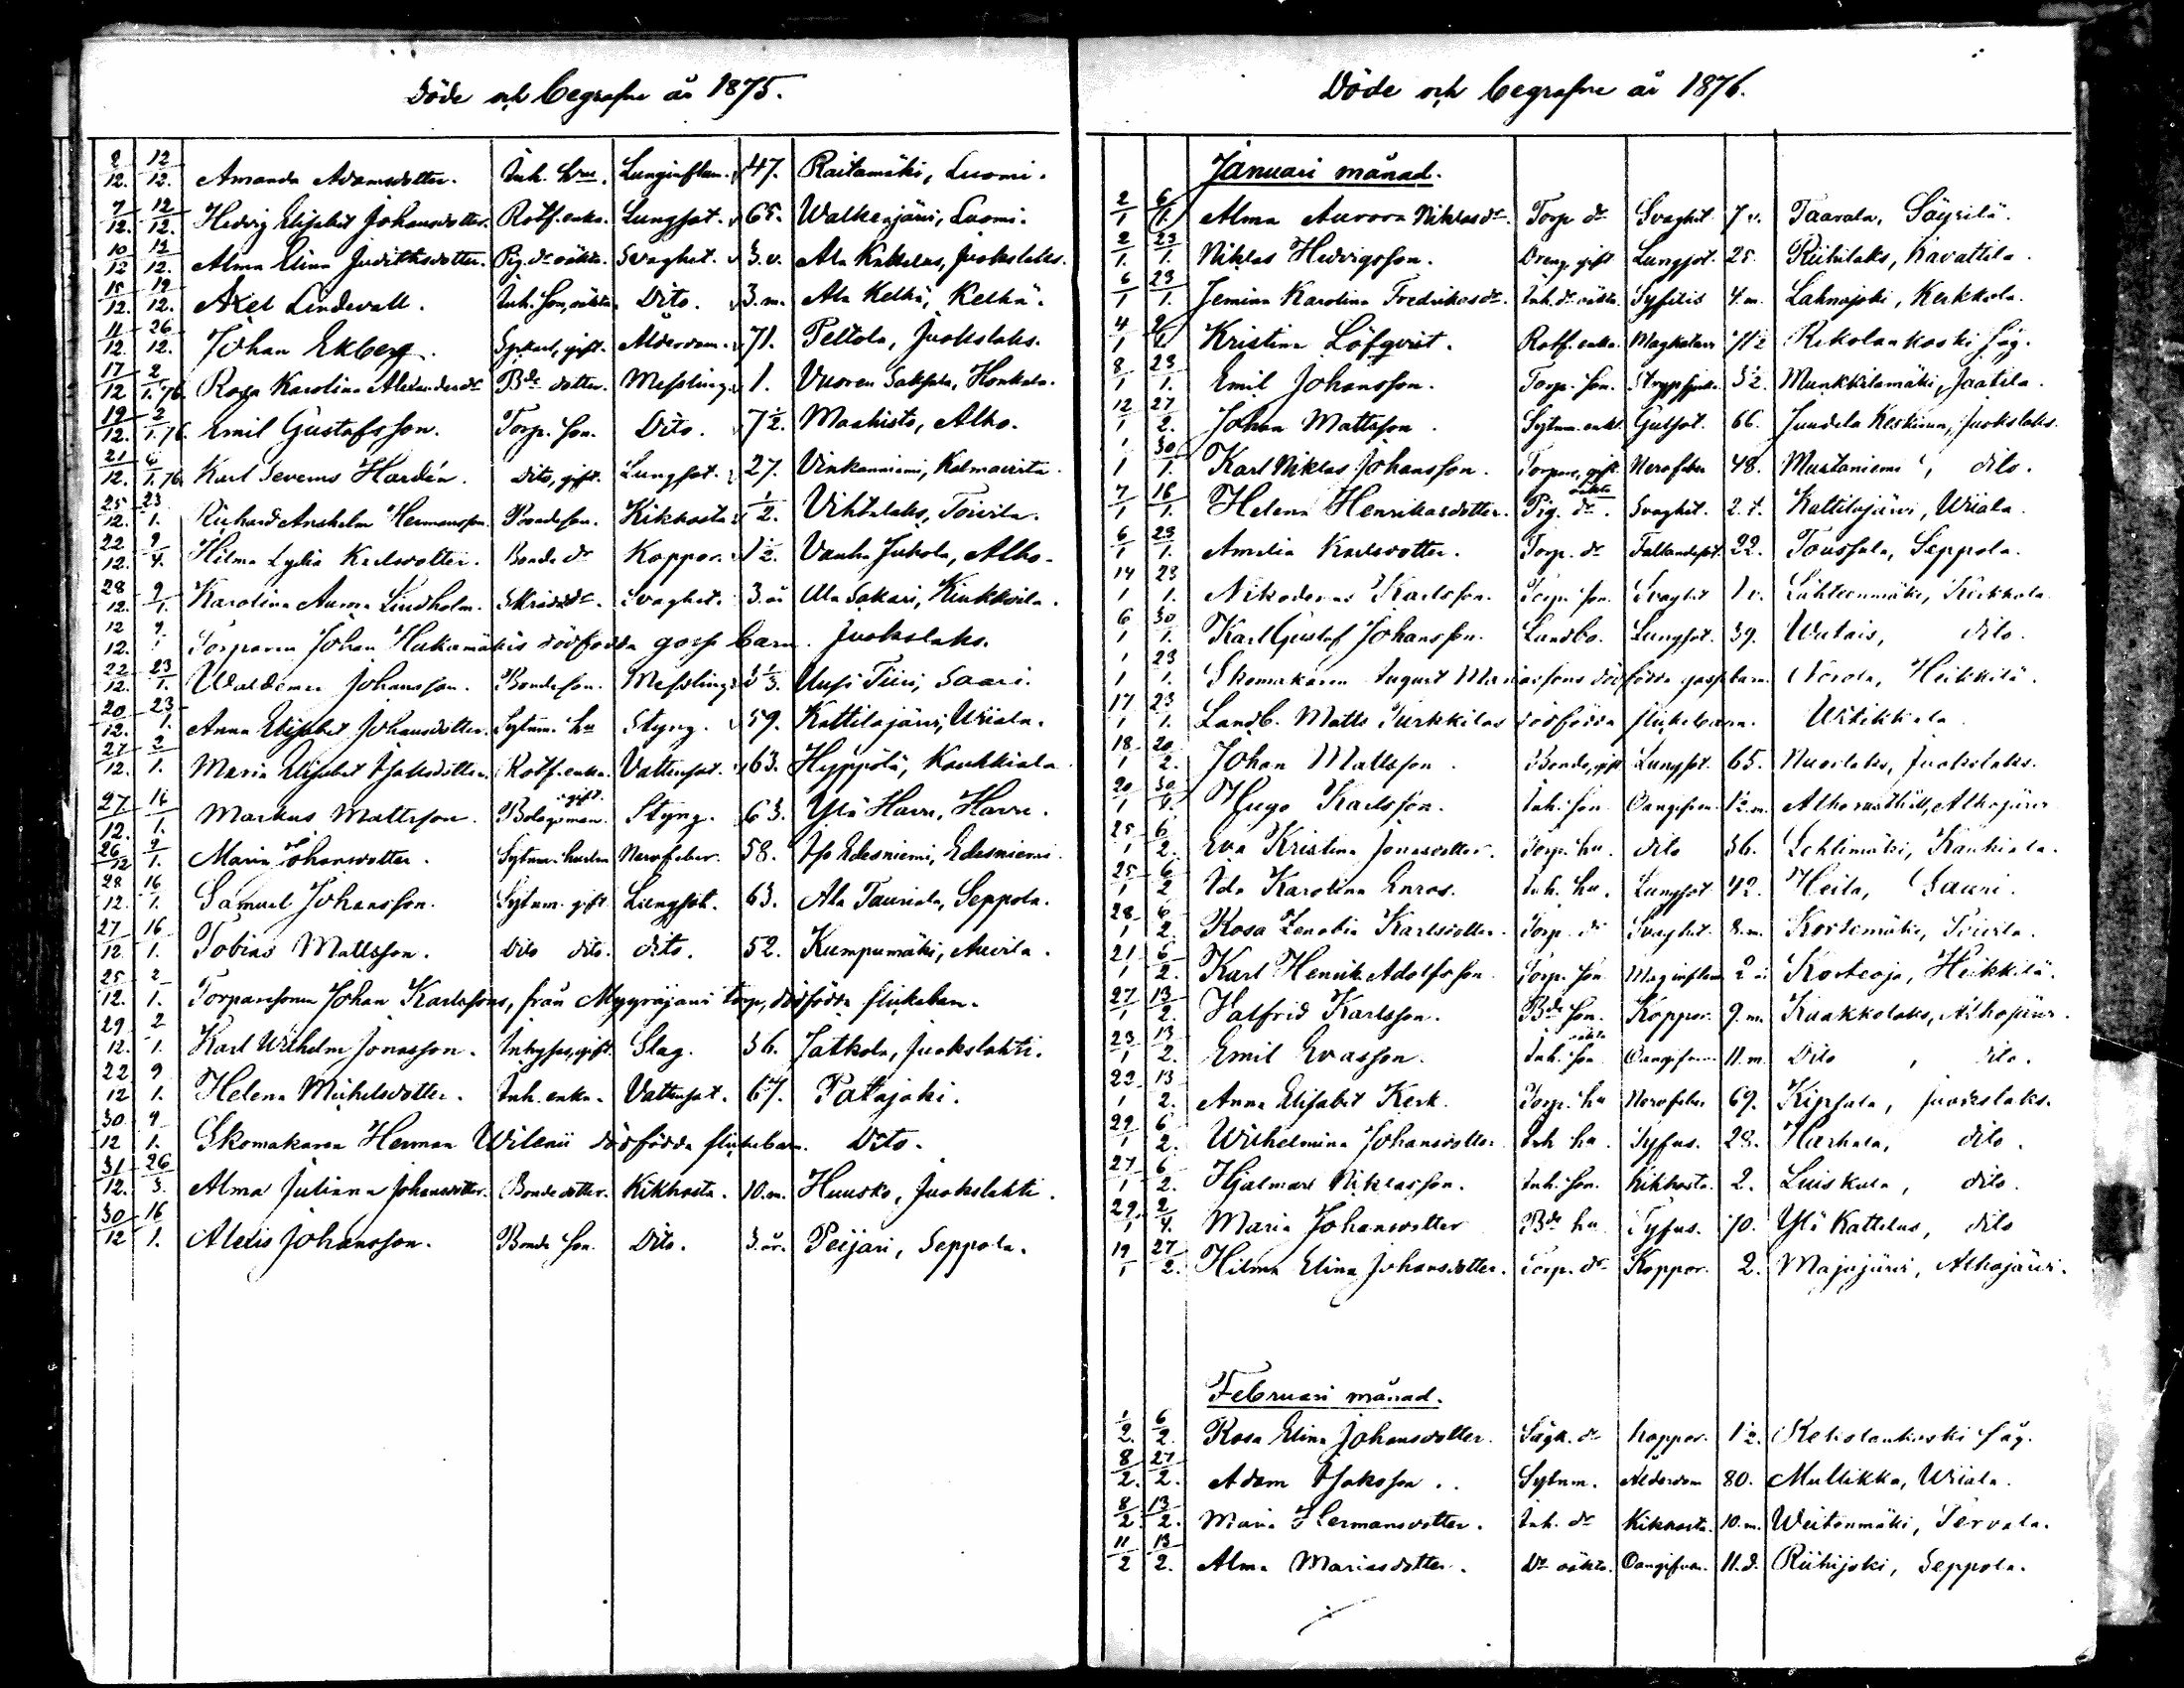 Döde och begrafne år 1875.
8/12. 12/12. Amanda Adamsdotter. Inh. hru. Lunginflam. 47. Raitamäki, Luomi.
7/12. 12/12. Hedvig Elisabet Johansdotter. Rotf. enka. Lungsot. 65. Walkeajärvi, Luomi.
10/12 12/12. Alma Elina Judithsdotter. Pig. dr oäkta. Svaghet. 3.v. Ala Kattelus, Juokslaks.
15/12. 19/12. Axel Lindevall. Inh. son, oäkta. Dito. 3.m. Ala Kelhä, Kelhä.
11/12. 26/12. Johan Ekberg. gift. Ålderdom. 71. Peltola, Juokslaks.
17/12 2/1.76. Rosa Karolina Alexandersdr Bde dotter. Messling. 1. Vuoren Saksala, Honkala.
19/12. 2/1.76. Emil Gustafsson. Torp. son. Dito. 7 1/2. Maahisto, Alho.
21/12. 6/1.76 Karl Severus Hardén. Dito, gift. Lungsot. 27. Vinkanniemi, Kalmavirta.
25/12. 23/1. Richard Anshelm Hermansson. Bondeson. Kikhosta 1/2. Vihtalaks, Toivila.
22/12. 9/4. Hilma Lydia Karlsdotter. Bonde dr Koppor. 1 1/2. Vanha Jukola, Alho.
28/12. 9/1. Karolina Anna Lindholm. Skräd. dr. Svaghet. 3.år Ala Sakari, Kiukkoila.
12/12. 9/1 Torparen Johan Hakamäkis dödfödda gosse barn. Juokslaks.
22/12. 23/1. Waldemar Johansson. Bondeson. Messling. 3 1/3. Uusi Tiiri, Saari.
20/12. 23/1. Anna Elisabet Johansdotter. Sytnin. hu Styng. 59. Kattilajärvi, Wiiala.
27/12. 2/1. Maria Elisabet Isaksdotter. Rotf. enka. Vattusot. 63. Hyppölä, Kaukkiala.
27/12. 16/1. Markus Mattsson. Bolagsman. gift. Styng. 63. Ylä Harri, Harri.
26/12 9/1. Maria Johansdotter. Sytnin. hustru Nervfeber. 58. Iso Edesniemi, Edesniemi.
28/12. 16/1. Samuel Johansson. Sytnin. gift. Lungsot. 63. Ala Tauriala, Seppola.
27/12. 16/1. Tobias Mattsson. dito dito. dito. 52. Kumpumäki, Anvila.
25/12. 2/1. Torparesonen Johan Karlssons, från Myyräjärvi torp, dödfödda flickebarn.
29/12. 2/1. Karl Wilhelm Jonasson. Inhyses, gift. Slag. 36. Jatkola, Juokslahti.
22/12 9/1. Helena Mickelsdotter. Inh. enka. Vattusot. 67. Patajoki.
30/12 9/1. Skomakaren Herman Wilenii dödfödda flickebarn. Dito.
31/12. 26/3. Alma Juliana Johansdotter. Bondedotter. Kikhosta. 10.m. Huusko, Juokslahti.
30/12 16/1. Alexis Johansson. Bonde son. Dito. 3.år. Peijari, Seppola.
Döde och begrafne år 1876.
Januari månad.
2/1 6/1. Alma Aurora Niklasdr. Torp dr Svaghet 7 v. Taavala, Säyrilä.
2/1. 23/1. Niklas Hedvigsson. Dreng. gift Lungsot. 25. Riihilaks, Kavattila.
6/1 23/1. Jemina Karolina Fredrikasdr. Inh. dr. oäkta Syfilis 4.m. Lahnajoki, Kerkkola.
4/1 9/1. Kristina Löfqvist. Rotf. enka. Magkatarr Rekolankoski såg.
8/1 23/1. Emil Johansson. Torp. son. Strypsjuka. 3 1/2. Munkkilamäki, Jaatila.
12/1 27/2. Johan Mattsson. Sytnin. enkl. Gulsot. 66. Juudela Keskinen, Juokslaks.
1/1 30/1. Karl Niklas Johansson. Torpare, gift. Nervfeber 48. Mustaniemi, dito.
7/1 16/1. Helena Henrikasdotter. Pig. dr. oäkta Svaghet. 2.t. Kattilajärvi, Wiiala.
6/1 23/1. Amalia Karlsdotter. Torp. dr Fallandesot. 22. Toussula, Seppola.
14/1 23/1. Nikodemus Karlsson. Torp. son. Svaghet 1 v. Lähteenmäki, Kerkkola.
6/1 30/1. Karl Gustaf Johansson. Landbo. Lungsot. 39. Watais, dito.
1/1 23/1. Skomakaren August Mariassons dödfödda gossebarn. Norola, Heikkilä.
17/1 23/1. Landb. Matts Turkkilas dödfödda flickebarn. Witikkala
18/1 20/2. Johan Mattsson. Bonde, gift Lungsot. 65. Nuorlaks, Juokslaks.
20/1 30/1. Hugo Karlsson. Inh. son Oangifven. 1 1/2.m. Alhojärvi
25/1 6/2. Eva Kristina Jonasdotter. Torp. hu. dito 36. Lehtimäki, Kaukiala.
25/1 6/2 Ida Karolina Enros. Inh. hu. Lungsot 42. Heila, Saari.
28/1 6/2. Rosa Zenobia Karlsdotter. Torp. dr Svaghet. 8.m. Kortemäki,
21/1 6/2. Karl Henrik Adolfsson. Torp. son Maginflam 2 år Korteoja, Heikkilä.
27/1 13/2. Valfrid Karlsson. Bde son. Koppor. 9.m. Kuakkolaks, Alhojärvi.
23/1 13/2. Emil Evasson. Inh. son oäkta Oangifven 11.m. Dito, dito.
22/1 13/2. Anna Elisabet Kerk. Torp. hu Nervfeber 69. Kipsala, Juokslaks.
29/1 6/2. Wilhelmina Johansdotter. Inh hu. Tyfus. 28. Harhala, dito.
27/1 6/2. Hjalmar Niklasson. Inh. son. Kikhosta. 2. Luiskala, dito.
29/1 2/4. Maria Johansdotter Bde hu Tyfus. 70. Ylä Kattelus, dito
19/1 27/2. Hilma Elina Johansdotter. Torp. dr Koppor. 2. Majajärvi, Alhojärvi.
Februari månad.
1/2. 6/2. Rosa Elina Johansdotter. Sågk. dr koppor. 1 1/2. Rekolankoski såg.
8/2. 27/2. Adam Isaksson. Sytnm. Ålderdom 80. Mullikka, Wiiala.
8/2. 13/2. Maria Hermansdotter. Inh. dr Kikhosta. 10.m. Weitonmäki, Tervala.
11/2 13/2. Alma Mariasdotter. Dr oäkta. Oangifven. 11.d. Riihijoki, Seppola.